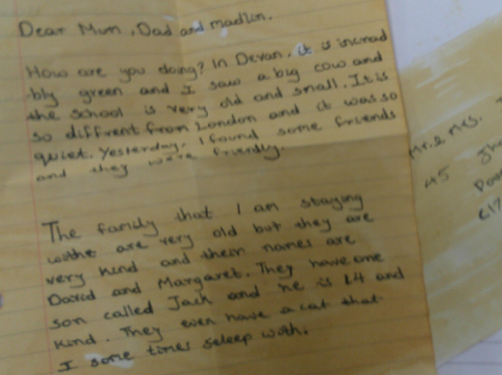 Dear Mum, Dad and madlin.
How are you doing? In Devon, it is incred
bly green and I saw a big cow and
the school is very old and small. It is
so diffrent from London and it was so
quiet. Yesterday, I found some friends
and they were friendly.
The family that I am staying
withe are very old but they are
very kind and their names are
David and Margaret. They have one
son called Jack and he is 14 and
kind. They even have a cat that
I some times seleep with.
Mr. & Mrs.
45